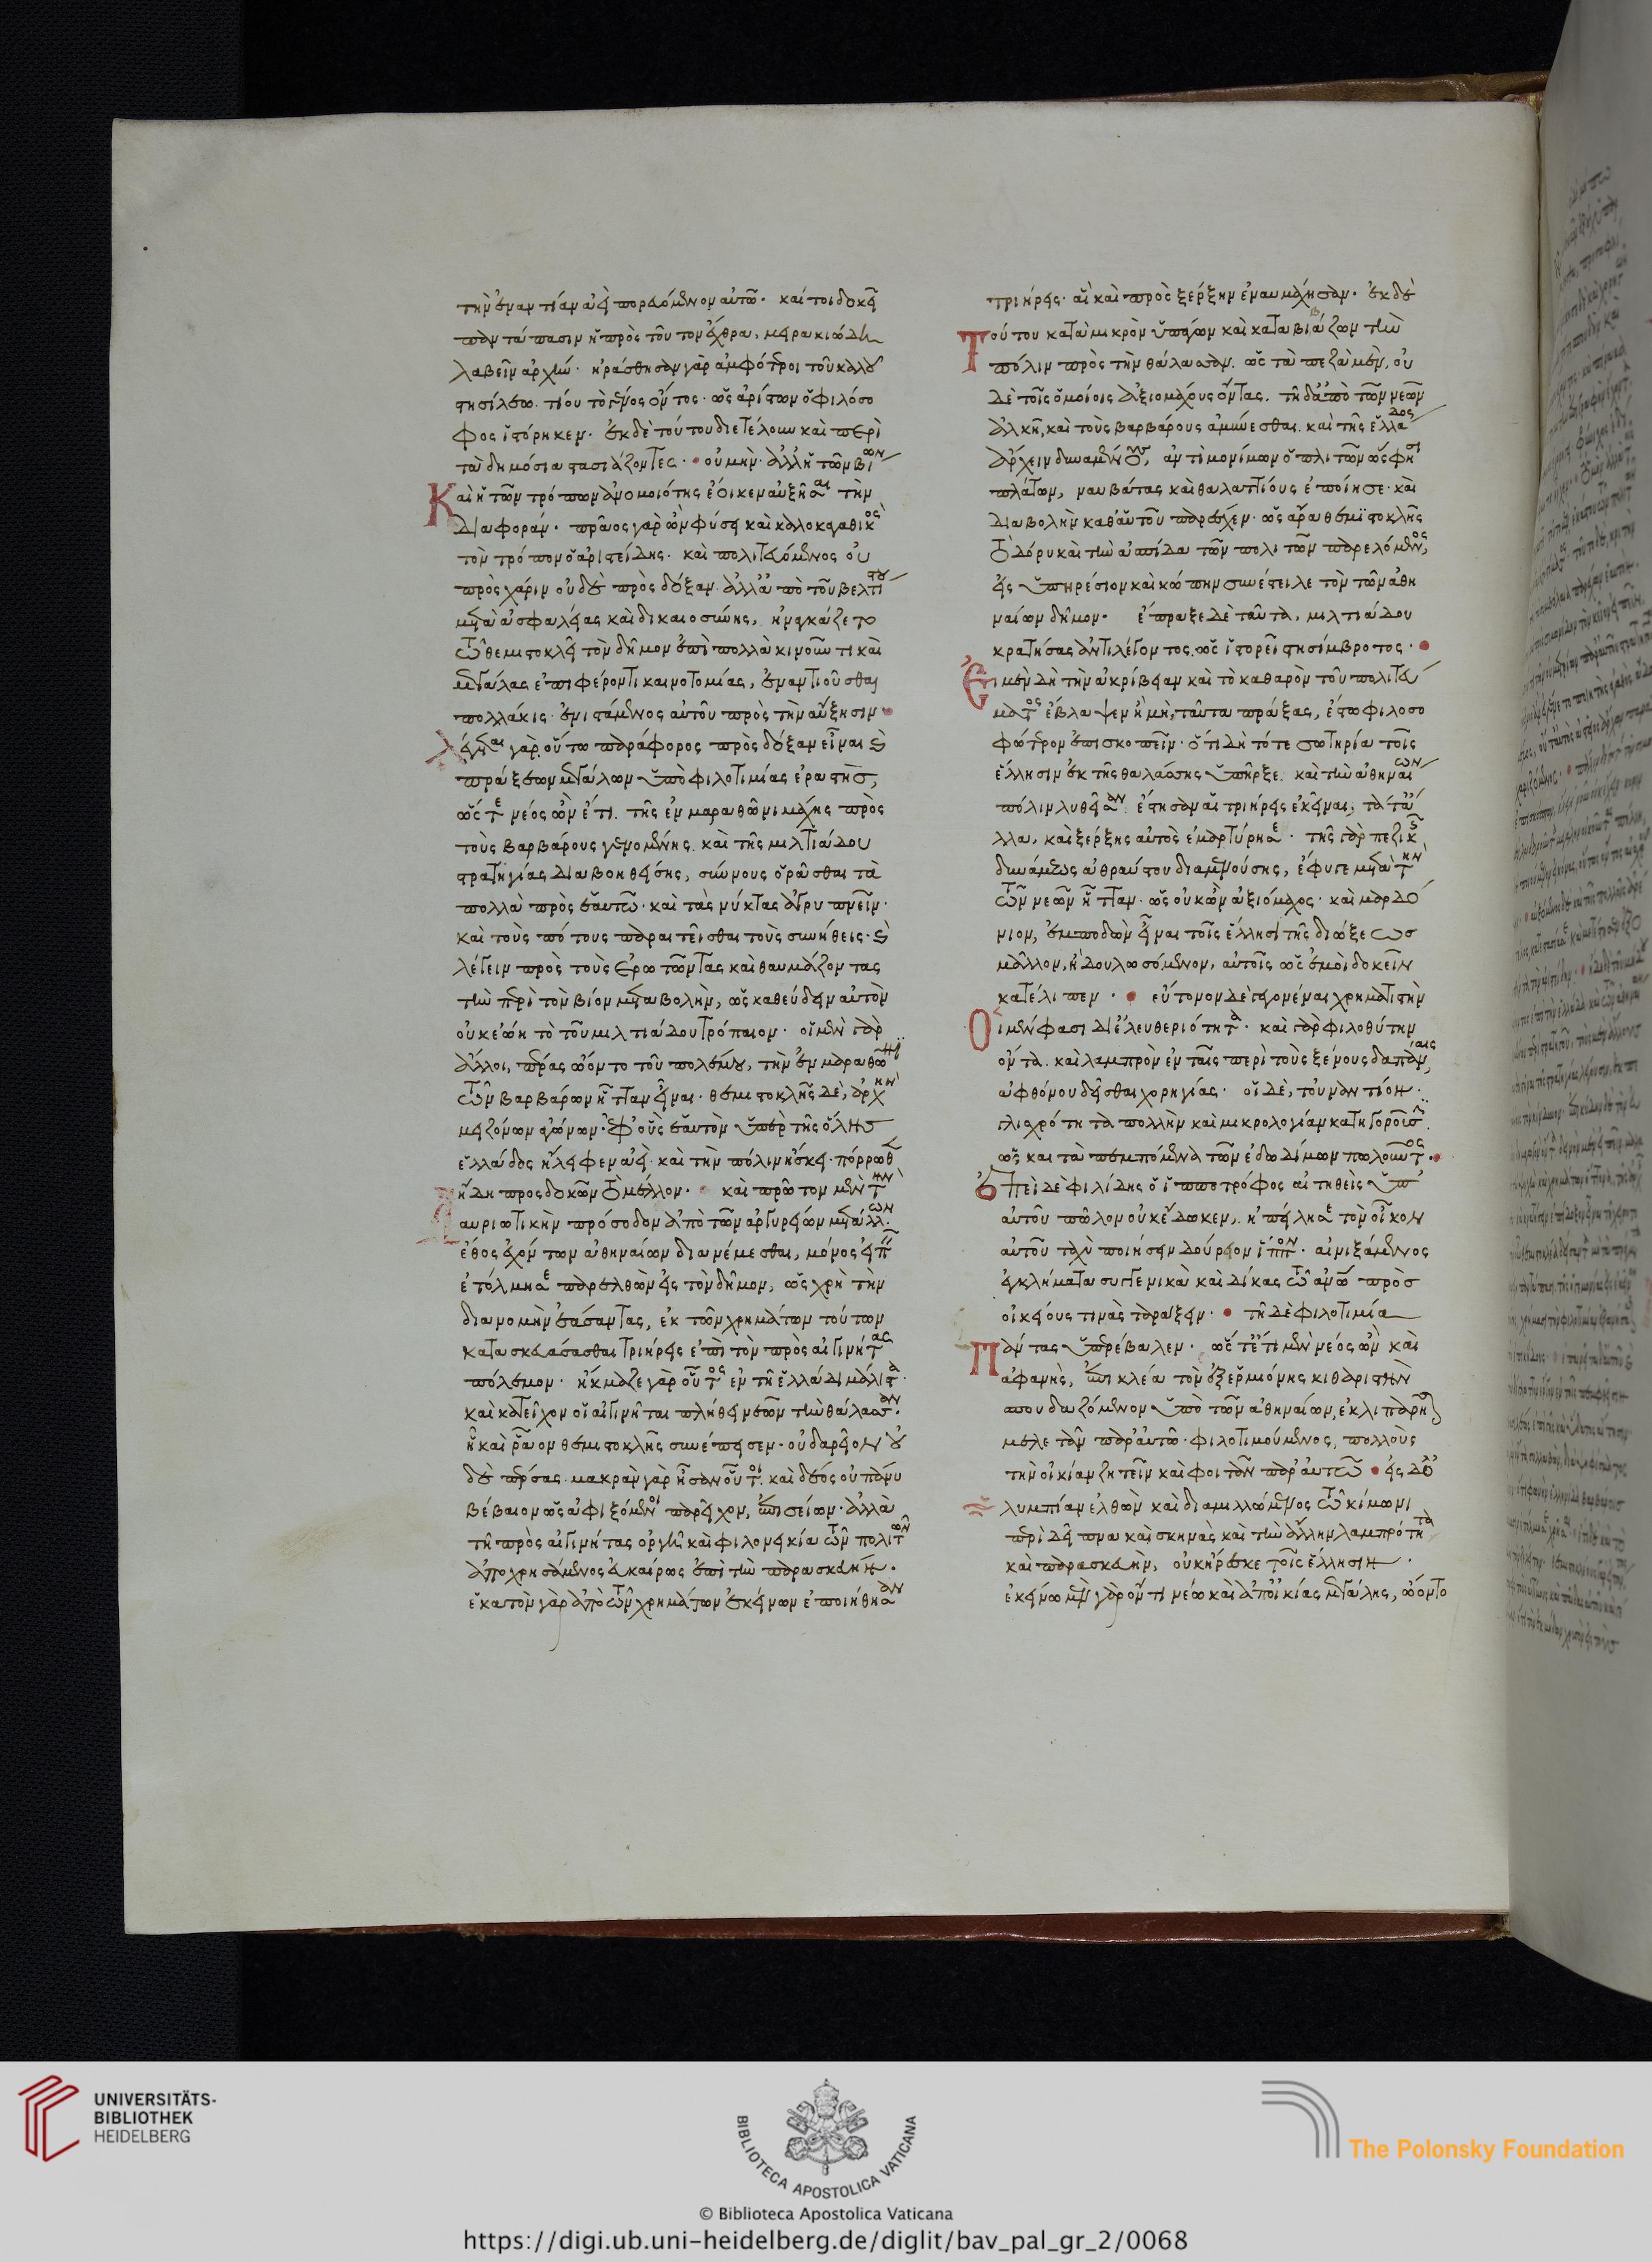 τὴν ἐναντίαν ἀεὶ πορευόμενον αὐτῶ· καίτοι δοκεῖ
παντάπασιν ἡ πρὸς τοῦτον ἔχθρα, μειρακιώδη
λαβεῖν ἀρχήν· ἠράσθησαν γὰρ ἀμφότεροι τοῦ καλοῦ
στησίλεω. τηίου τὸ γένος ὄντος· ὡς ἀρίστων ὁ φιλόσο
φος ἱστόρηκεν· ἐκ δὲ τούτου διετέλουν καὶ περὶ
τὰ δημόσια στασιάζοντες· οὐ μὴν ἀλλ' ἡ τῶν βίων
Καὶ ἡ τῶν τρόπων ἀνομοιότης ἔοικεν αὐξῆσαι τὴν
διαφοράν· πρᾶος γὰρ ὢν φύσει καὶ καλοκαγαθικὸς
τὸν τρόπον ὁ ἀριστείδης· καὶ πολιτευόμενος οὐ
πρὸς χάριν οὐδὲ πρὸς δόξαν. ἀλλ' ἀπὸ τοῦ βελτίστου
μετὰ ἀσφαλείας καὶ δικαιοσύνης, ἠναγκάζετο
τῶ θεμιστοκλεῖ τὸν δῆμον ἐπὶ πολλὰ κινοῦντι καὶ
μεγάλας ἐπιφέροντι καινοτομίας, ἐναντιοῦσθαι
πολλάκις· ἐνιστάμενος αὐτοῦ πρὸς τὴν αὔξησιν·
Λέγεται γὰρ. οὕτω παράφορος πρὸς δόξαν εἶναι καὶ
πράξεων μεγάλων ὑπὸ φιλοτιμίας ἐραστὴς,
ὥστε νέος ὢν ἔτι. τῆς ἐν μαραθῶνι μάχης πρὸς
τοὺς βαρβάρους γενομένης. καὶ τῆς μιλτιάδου
στρατηγίας διαβοηθείσης, σύννους ὁρᾶσθαι τὰ
πολλὰ πρὸς ἑαυτῶ· καὶ τὰς νύκτας ἀγρυπνεῖν·
καὶ τοὺς πότους παραιτεῖσθαι τοὺς συνήθεις· καὶ
λέγειν πρὸς τοὺς ἐρωτῶντας καὶ θαυμάζοντας
τὴν περὶ τὸν βίον μεταβολὴν, ὡς καθεύδειν αὐτὸν
οὐκ ἐώη τὸ τοῦ μιλτιάδου τρόπαιον· οἱ μὲν γὰρ
ἄλλοι, πέρας ὤοντο τοῦ πολέμου, τὴν ἐν μαραθῶνι
τῶν βαρβάρων ἧτταν εἶναι· θεμιστοκλῆς δὲ, ἀρχὴν
μειζόνων ἀγώνων· ἐφ' οὓς ἑαυτὸν ὑπὲρ τῆς ὅλης
ἑλλάδος ἤλειφεν ἀεὶ· καὶ τὴν πόλιν ἤσκει· πόρρωθεν
ἤδη προσδοκῶν τὸ μέλλον· καὶ πρῶτον μὲν τὴν
Λαυριωτικὴν πρόσοδον ἀπὸ τῶν ἀργυρείων μετάλλων
ἔθος ἐχόντων ἀθηναίων διανέμεσθαι, μόνος εἰπεῖν
ἐτόλμησε παρελθὼν εἰς τὸν δῆμον, ὡς χρὴ τὴν
διανομὴν ἐάσαντας, ἐκ τῶν χρημάτων τούτων
κατασκευάσασθαι τριήρεις ἐπὶ τὸν πρὸς αἰγινήτας
πόλεμον· ἤκμαζε γὰρ οὗτος ἐν τῆ ἑλλάδι μάλιστα·
καὶ κατεῖχον οἱ αἰγινῆται πλήθει νεῶν τὴν θάλασσαν·
ἧ καὶ ῥᾶον θεμιστοκλῆς συνέπεισεν· οὐ δαρεῖον οὐ
δὲ πέρσας. μακρὰν γὰρ ἦσαν οὗτοι. καὶ δέος οὐ πάνυ
βέβαιον ὡς ἀφιξόμενοι παρεῖχον, ἐπισείων· ἀλλὰ
τῆ πρὸς αἰγινήτας ὀργῆ καὶ φιλονεικία τῶν πολιτῶν
ἀποχρησάμενος εὐκαίρως ἐπὶ τὴν παρασκευήν·
ἑκατὸν γὰρ ἀπὸ τῶν χρημάτων ἐκείνων ἐποιήθησαν
τριήρεις· αἳ καὶ πρὸς ξέρξην ἐναυμάχησαν· ἐκ δὲ
Τούτου κατὰ μικρὸν ὑπάγων καὶ καταβιβάζων τὴν
πόλιν πρὸς τὴν θάλασσαν. ὡς τὰ πεζὰ μὲν, οὐ
δὲ τοῖς ὁμοίοις ἀξιομάχους ὄντας. τῆ δ' ἀπὸ τῶν νεῶν
ἀλκῆ, καὶ τοὺς βαρβάρους ἀμύνεσθαι. καὶ τῆς ἑλλάδος
ἄρχειν δυναμένους, ἀντὶ μονίμων ὁπλιτῶν ὥς φησι
πλάτων, ναυβάτας καὶ θαλαττίους ἐποίησε· καὶ
διαβολὴν καθ' αὑτοῦ παρέσχεν· ὡς ἄρα θεμιστοκλῆς
τὸ δόρυ καὶ τὴν ἀσπίδα τῶν πολιτῶν παρελόμενος,
εἰς ὑπηρέσιον καὶ κώπην συνέστειλε τὸν τῶν ἀθη
ναίων δῆμον· ἔπραξε δὲ ταῦτα, μιλτιάδου
κρατήσας ἀντιλέγοντος. ὡς ἱστορεῖ στησίμβροτος·
Εἰ μὲν δὴ τὴν ἀκρίβειαν καὶ τὸ καθαρὸν τοῦ πολιτεύ
ματος ἔβλαψεν ἢ μὴ, ταῦτα πράξας, ἔστω φιλοσο
φώτερον ἐπισκοπεῖν· ὅτι δὴ τότε σωτηρία τοῖς
ἕλλησιν ἐκ τῆς θαλάσσης ὑπῆρξε. καὶ τὴν ἀθηναίων
πόλιν λυθεῖσαν ἔστησαν αἱ τριήρεις ἐκεῖναι, τά τ' ἄ
λλα, καὶ ξέρξης αὐτὸς ἐμαρτύρησε· τῆς γὰρ πεζικῆς
δυνάμεως ἀθραύστου διαμενούσης, ἔφυγε μετὰ τὴν
τῶν νεῶν ἧτταν· ὡς οὐκ ὢν ἀξιόμαχος· καὶ μαρδό
νιον, ἐμποδὼν εἶναι τοῖς ἕλλησι τῆς διώξεως
μᾶλλον, ἢ δουλωσόμενον, αὐτοῖς ὡς ἐμοὶ δοκεῖν
κατέλιπεν· εὔτονον δὲ γεγονέναι χρηματιστὴν
Οἱ μέν φασι δι' ἐλευθεριότητα· καὶ γὰρ φιλοθύτην
ὄντα. καὶ λαμπρὸν ἐν ταῖς περὶ τοὺς ξένους δαπάναις,
ἀφθόνου δεῖσθαι χορηγίας· οἱ δὲ, τοὐναντίον.
γλισχρότητα πολλὴν καὶ μικρολογίαν κατηγοροῦσιν.
ὡς καὶ τὰ πεμπόμενα τῶν ἐδωδίμων πωλοῦντος·
Ἐπεὶ δὲ φιλίδης ὁ ἱπποτρόφος αἰτηθεὶς ὑπ'
αὐτοῦ πῶλον οὐκ ἔδωκεν, ἠπείλησε τὸν οἶκον
αὐτοῦ ταχὺ ποιήσειν δούρειον ἵππον· αἰνιξάμενος
ἐγκλήματα συγγενικὰ καὶ δίκας τῶ ἀνθρώπω πρὸς
οἰκείους τινὰς ταράξειν· τῆ δὲ φιλοτιμία
Πάντας ὑπερέβαλεν· ὥστ' ἔτι μὲν νέος ὢν καὶ
ἀφανὴς, ἐπικλέα τὸν ἐξ ἑρμιόνης κιθαριστὴν
σπουδαζόμενον ὑπὸ τῶν ἀθηναίων, ἐκλιπαρῆσαι
μελετᾶν παρ' αὐτῶ· φιλοτιμούμενος, πολλοὺς
τὴν οἰκίαν ζητεῖν καὶ φοιτᾶν παρ' αὐτὸν· εἰς δ' ὀ
λυμπίαν ἐλθὼν καὶ διαμιλλώμενος τῶ κίμωνι
περὶ δεῖπνα καὶ σκηνὰς καὶ τὴν ἄλλην λαμπρότητα
καὶ παρασκευὴν, οὐκ ἤρεσκε τοῖς ἕλλησιν·
ἐκείνω μὲν γὰρ ὄντι νέω καὶ ἀπ' οἰκίας μεγάλης, ὤοντο
UNIVERSITÄTS-
BIBLIOTHEK
HEIDELBERG
BIBLIOTECA APOSTOLICA VATICANA
The Polonsky Foundation
© Biblioteca Apostolica Vaticana
https://digi.ub.uni-heidelberg.de/diglit/bav_pal_gr_2/0068